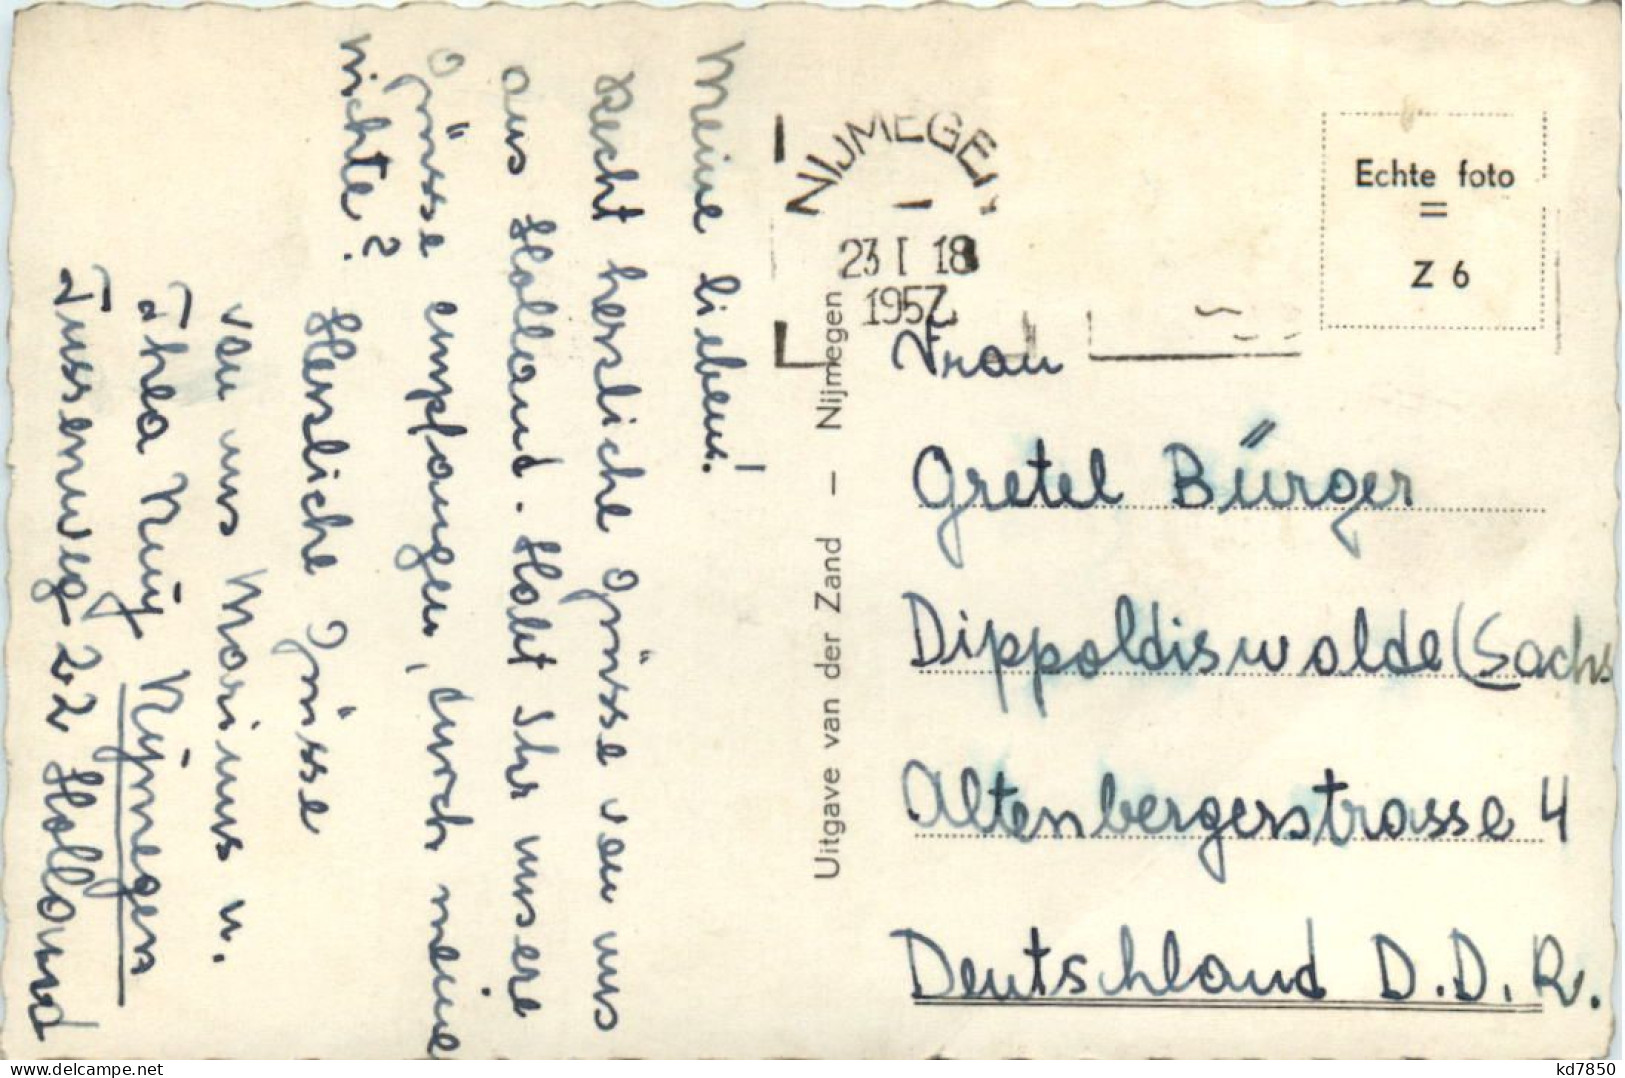 Meine lieben!
Recht hersliche Grüsse von uns
aus Holland. Habt Ihr unsere
Grüsse empfangen, durch meine
nichte?
Hersliche Grüsse
von uns Marinus u.
Thea Nuij Nijmegen
Tussenweg 22 Holland
Uitgave van der Zand – Nijmegen
NIJMEGEN
23 I 18
1957
Echte foto
=
Z 6
Frau
Gretel Bürger
Dippoldiswalde (Sachs
Altenbergerstrasse 4
Deutschland D.D.R.
kd7850